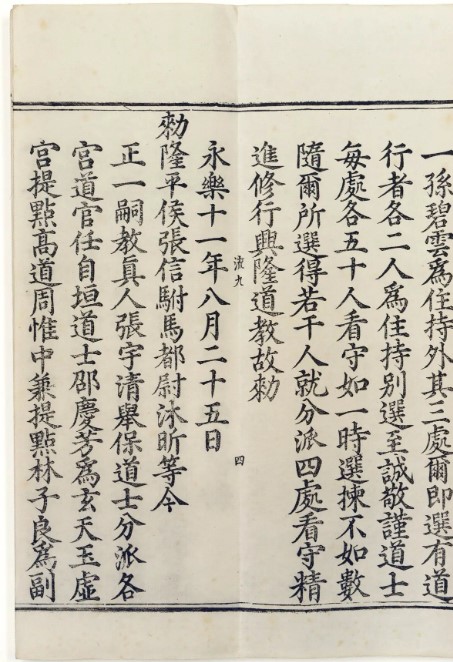 一孫碧雲為住持外其三處爾即選有道
行者各二人為住持別選至誠敬謹道士
每處各五十人看守如一時選揀不如數
隨爾所選得若干人就分派四處看守精
進修行興隆道教故勑
淡九
四
永樂十一年八月二十五日
勑隆平侯張信駙馬都尉沐昕等今
正一嗣教真人張宇清舉保道士分派各
宮道官任自垣道士邵慶芳為玄天玉虛
宮提點高道周惟中兼提點林子良為副